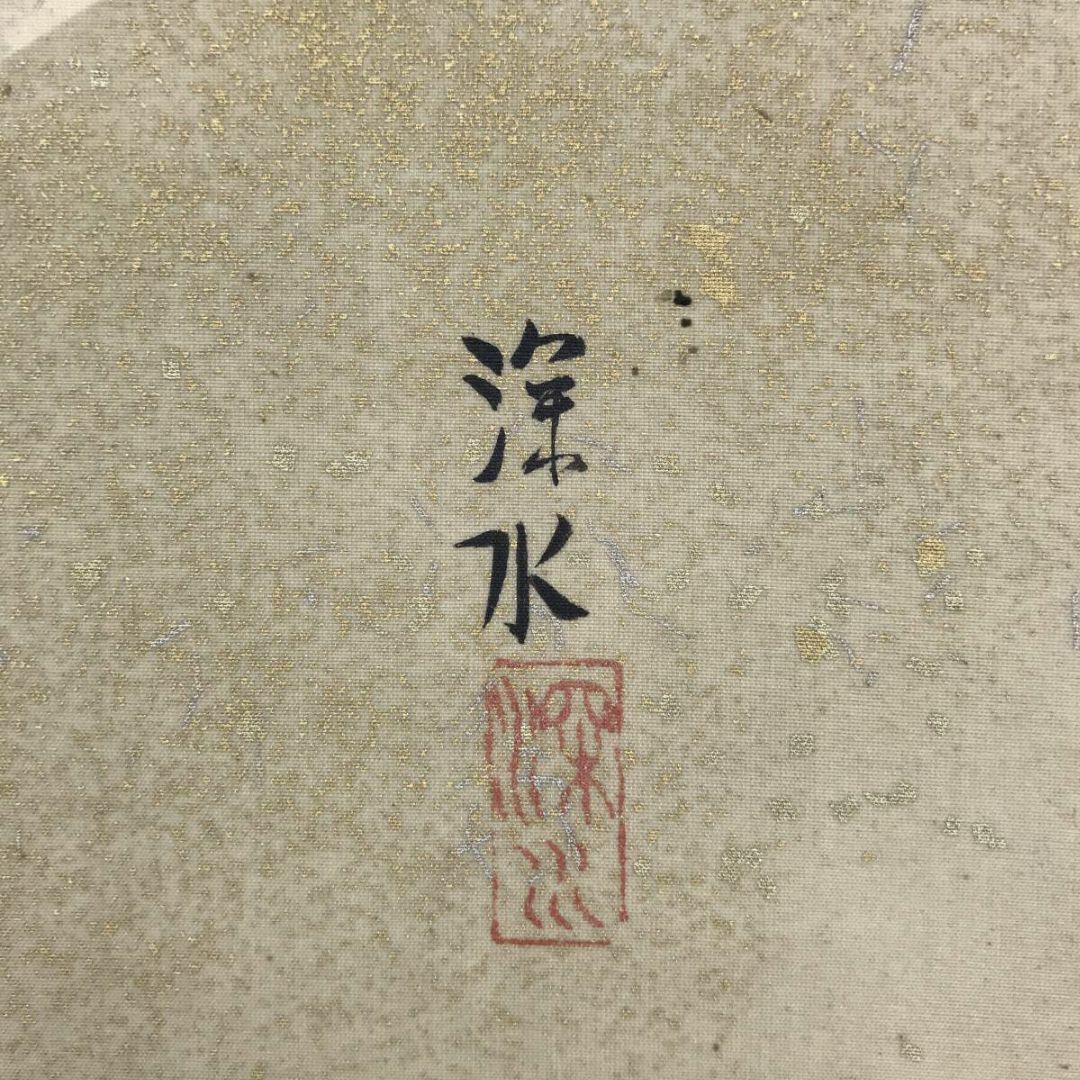 深水
深水